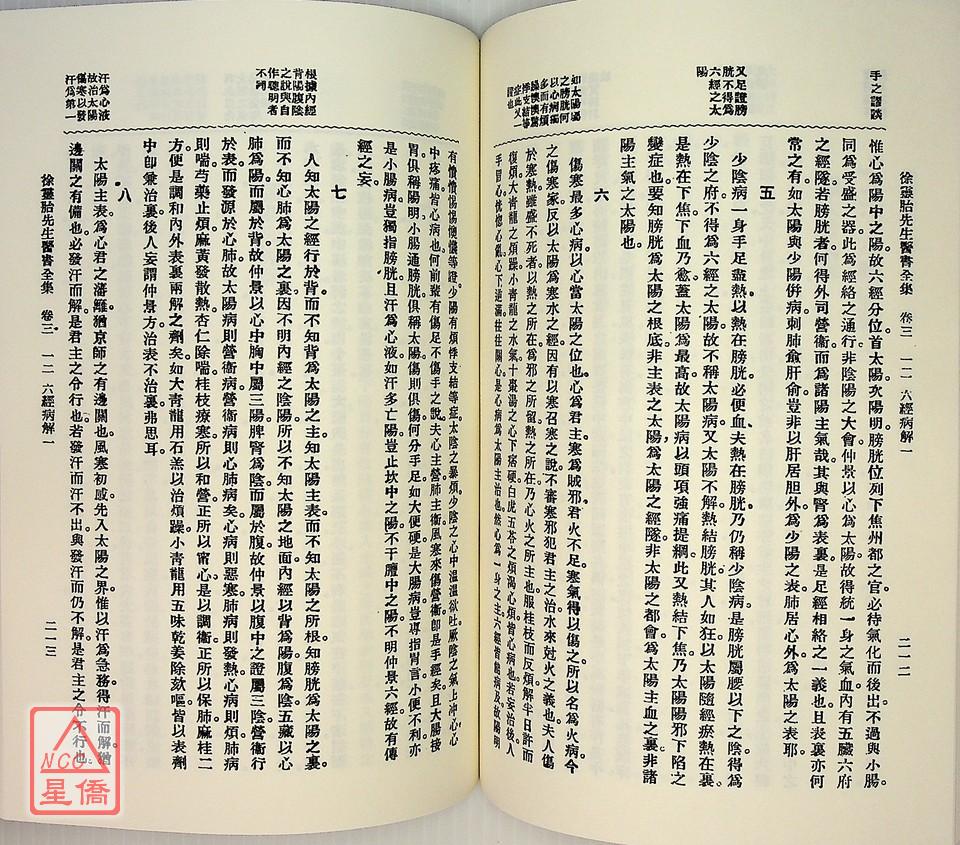 手之謬談
惟心爲陽中之陽。故六經分位。首太陽。次陽明。膀胱位列下焦。州都之官。必待氣化而後出。不過與小腸
同爲受盛之器。此爲經絡之通行。非陰陽之大會。仲景以心爲太陽。故得統一身之氣血。內有五臟六府
之經隧。若膀胱者。何得外司營衞。而爲諸陽主氣哉。其與腎爲表裏。是足經相絡之一義也。且表裏亦何
常之有。如太陽與少陽倂病。刺肺兪肝兪。豈非以肝居胆外。爲少陽之表。肺居心外。爲太陽之表耶。
五
又足證膀
胱不得爲
六經之太
陽
少陰病。一身手足盡熱。以熱在膀胱。必便血。夫熱在膀胱。乃仍稱少陰病。是膀胱屬腰以下之陰。得爲
少陰之府。不得爲六經之太陽。故不稱太陽病。又太陽不解。熱結膀胱。其人如狂。以太陽隨經。瘀熱在裏。
是熱在下焦。下血乃愈。蓋太陽爲最高。故太陽病以頭項強痛提綱。此又熱結下焦。乃太陽陽邪下陷之
變症也。要知膀胱爲太陽之根底。非主表之太陽。爲太陽之經隧。非太陽之都會。爲太陽主血之裏。非諸
陽主氣之太陽也。
六
如太陽屬
之膀胱何
以心病獨
多而有煩
躁懊憹驚
悸支結等
症此又一
證也
傷寒最多心病。以心當太陽之位也。心爲君主。寒爲賊邪。君火不足。寒氣得以傷之。所以名爲火病。今
之傷寒家。反以太陽爲寒水之經。因有以寒召寒之說。不審寒邪犯君主之治。水來尅火之義也。夫人傷
於寒。熱雖盛不死者。以熱之所在。爲邪之所留。熱之所在。乃心火之所主也。服桂枝而反煩。解半日許而
復煩。大青龍之煩躁。小青龍之水氣。十棗湯之心下痞硬。白虎五苓之煩渴心煩。皆心病也。若妄治後。人
手冒心。恍惚心亂。心下逆滿。往往關心。是心病爲太陽主治也。然心爲一身之主。六經皆能病及。故陽明
有憒憒惕惕懊憹等證。少陽有煩悸支結等症。太陰之暴煩。少陰之心中溫溫欲吐。厥陰之氣上冲心。心
中疼痛。皆心病也。何前輩有傷足不傷手之說。夫心主營。肺主衞。風寒來傷營衞。卽是手經矣。且大腸接
胃。俱稱陽明。小腸通膀胱。俱稱太陽。傷則俱傷。何分手足。如大便硬是大腸病。豈專指胃言。小便不利亦
是小腸病。豈獨指膀胱。且汗爲心液。如汗多亡陽。豈止坎中之陽。不干膻中之陽。不明仲景六經。故有傳
經之妄。
七
根據內經
背陽腹陰
之說與自
作聰明者
不同
人知太陽之經行於背。而不知背爲太陽之主。知太陽主表。而不知太陽之所根。知膀胱爲太陽之裏。
而不知心肺爲太陽之裏。因不明內經之陰陽。所以不知太陽之地面。內經以背爲陽。腹爲陰。五臟以心
肺爲陽。而屬於背。故仲景以心中胸中屬三陽。脾腎爲陰。而屬於腹。故仲景以腹中之證屬三陰。營衞行
於表。而發源於心肺。故太陽病則營衞病。營衞病則心肺病矣。心病則惡寒。肺病則發熱。心病則煩。肺病
則喘。芍藥止煩。麻黃發散熱。杏仁除喘。桂枝療寒。所以和營正所以甯心。是以調衞正所以保肺。麻桂二
方。便是調和內外。表裏兩解之劑矣。如大青龍用石羔以治煩躁。小青龍用五味乾姜除欬嘔。皆以表劑
中卽兼治裏。後人妄謂仲景方治表不治裏。弗思耳。
八
汗爲心液
故治太陽
傷寒以發
汗爲第一
太陽主表。爲心君之藩籬。猶京師之有邊關也。風寒初感。先入太陽之界。惟以汗爲急務。得汗而解。猶
邊關之有備也。必發汗而解。是君主之令行也。若發汗而汗不出。與發汗而仍不解。是君主之令不行也。
徐靈胎先生醫書全集　卷三　一二　六經病解一　二一二
徐靈胎先生醫書全集　卷三　一二　六經病解一　二一三
NCC
星僑